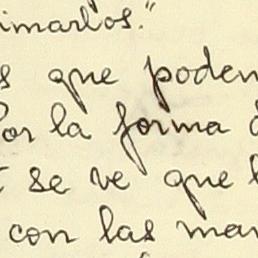 imarlos."
s que poden
or la forma d
se ve que l
con las man